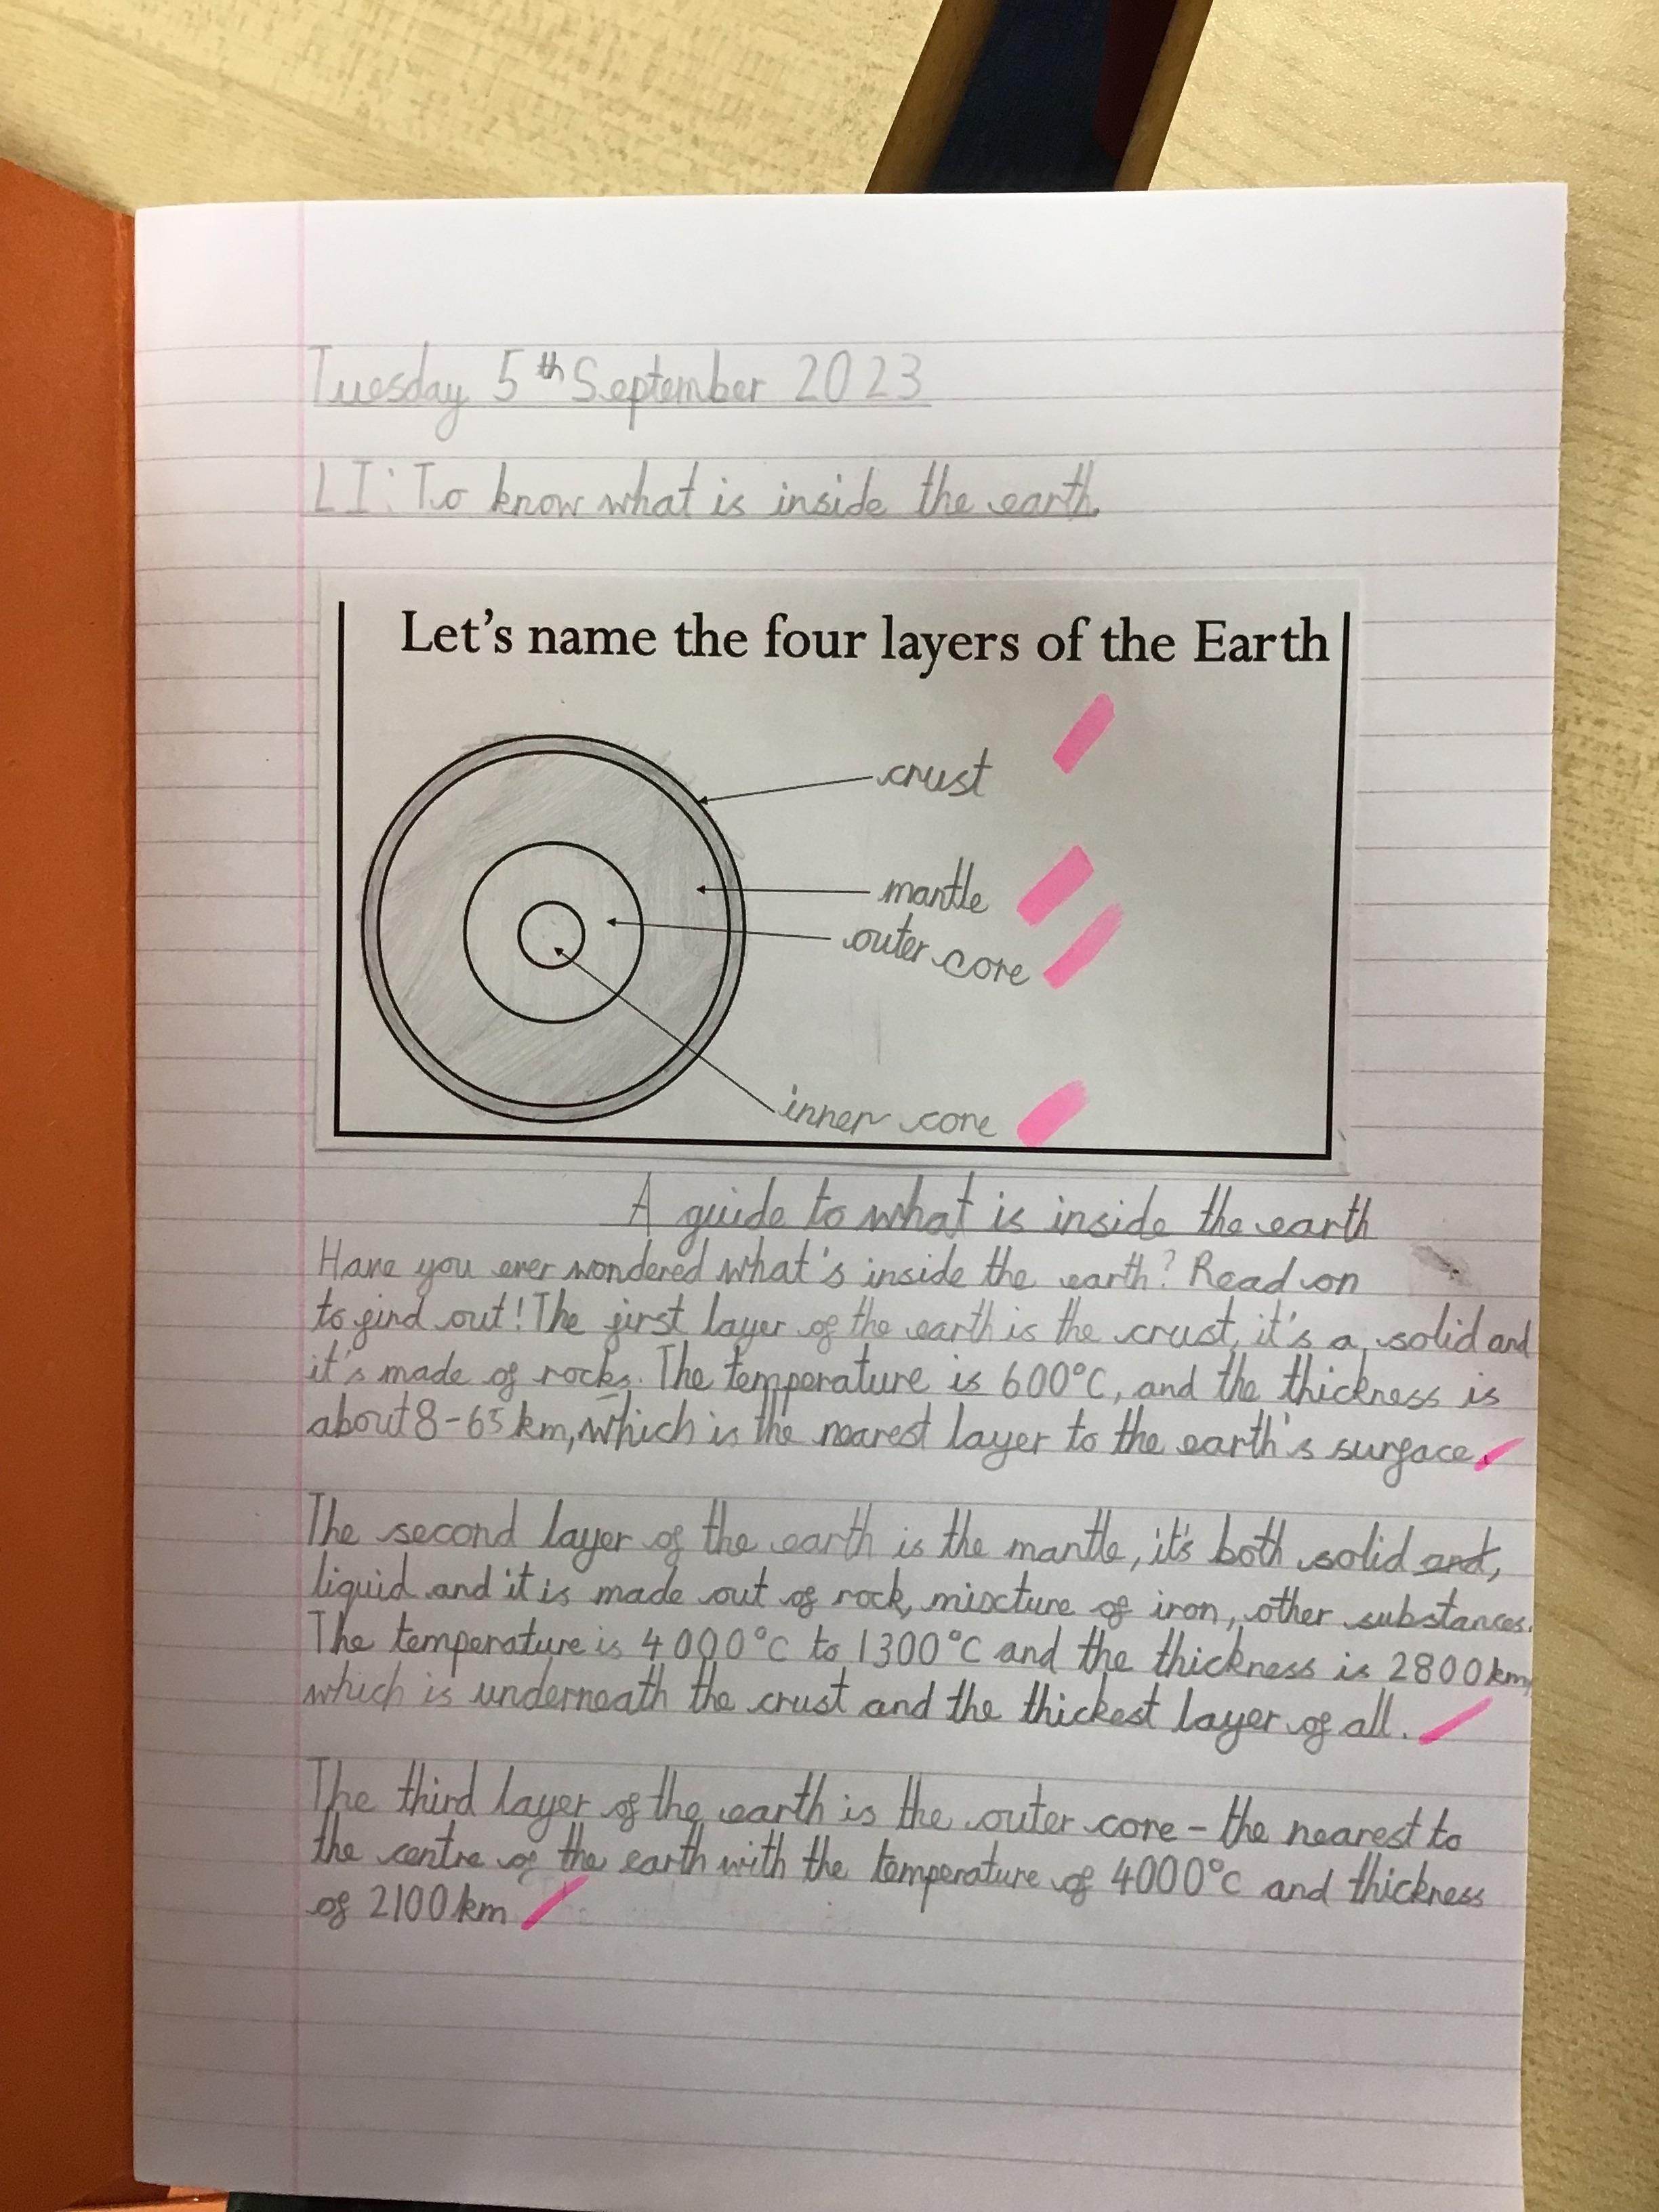 Tuesday 5th September 2023
LI: To know what is inside the earth.
Let's name the four layers of the Earth
crust
mantle
outer core
inner core
A guide to what is inside the earth
Have you ever wondered what's inside the earth? Read on
to find out! The first layer of the earth is the crust, it's a solid and
it's made of rocks. The temperature is 600°C, and the thickness is
about 8-65 km, which is the nearest layer to the earth's surface.
The second layer of the earth is the mantle, it's both solid and,
liquid and it is made out of rock, mixture of iron, other substances.
The temperature is 4000°C to 1300°C and the thickness is 2800km,
which is underneath the crust and the thickest layer of all.
The third layer of the earth is the outer core - the nearest to
the centre of the earth with the temperature of 4000°C and thickness
of 2100km